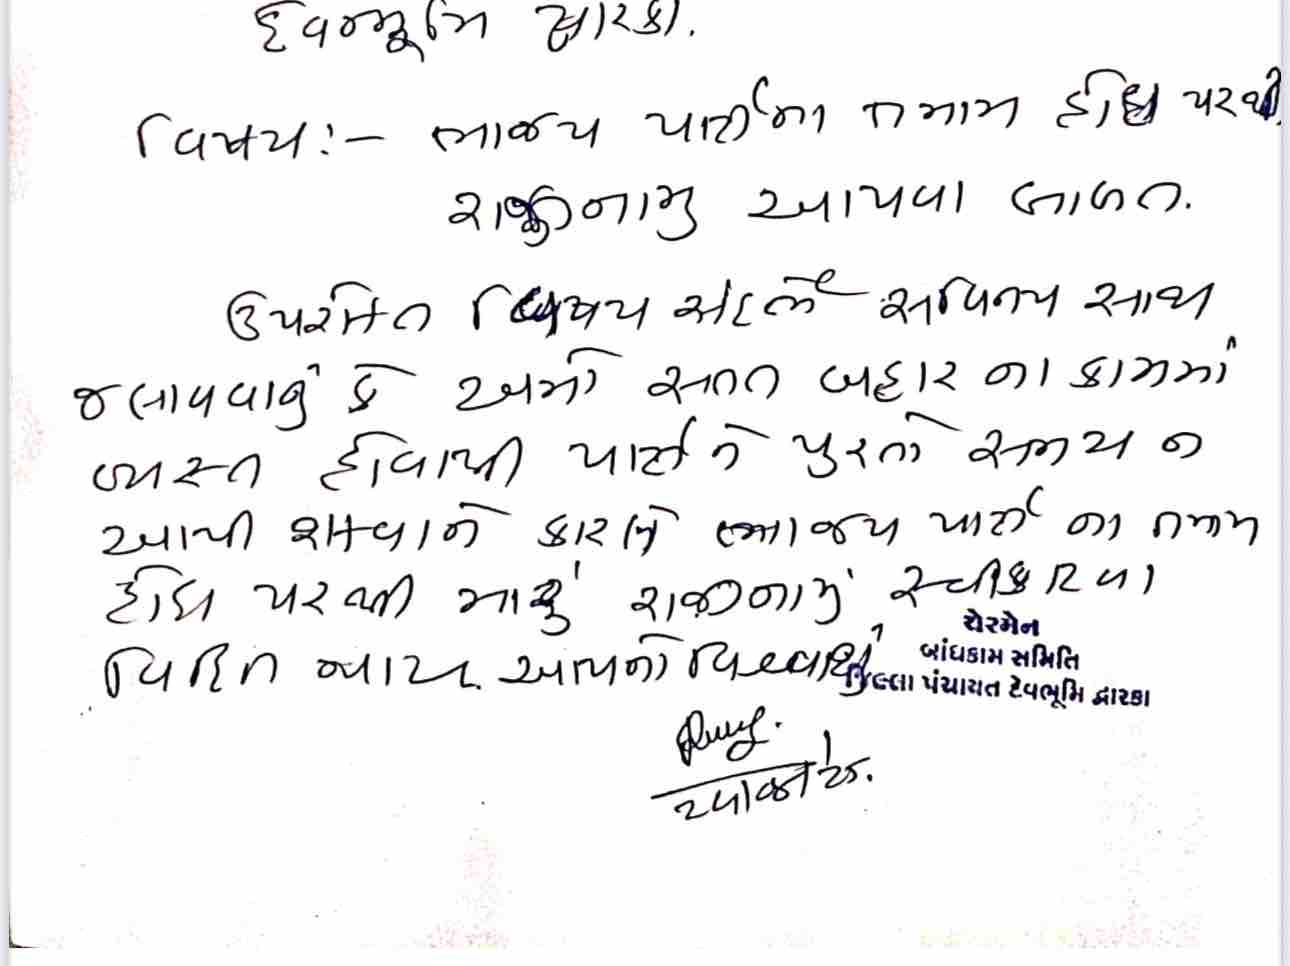 દેવભૂમિ દ્વારકા.
વિષય:- ભાજપ પાર્ટીના તમામ હોદ્દા પરથી
રાજીનામુ આપવા બાબત.
ઉપરોક્ત વિષય સંદર્ભે સવિનય સાથ
જણાવવાનું કે અમો સતત બહાર ના કામમાં
વ્યસ્ત હોવાથી પાર્ટીને પુરતો સમય ન
આપી શકવાને કારણે ભાજપ પાર્ટી ના તમામ
હોદ્દા પરથી મારું રાજીનામું સ્વીકારવા
વિનંતિ આપનો વિશ્વાસુ
ચેરમેન
બાંધકામ સમિતિ
જિલ્લા પંચાયત દેવભૂમિ દ્વારકા